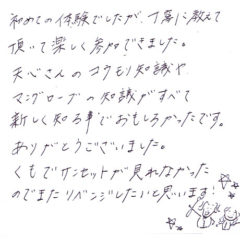 初めての体験でしたが、丁寧に教えて
頂いて楽しく参加できました。
天心さんのコウモリ知識や
マングローブの知識がすべて
新しく知る事でおもしろかったです。
ありがとうございました。
くもでサンセットが見れなかった
のでまたリベンジしたいと思います!